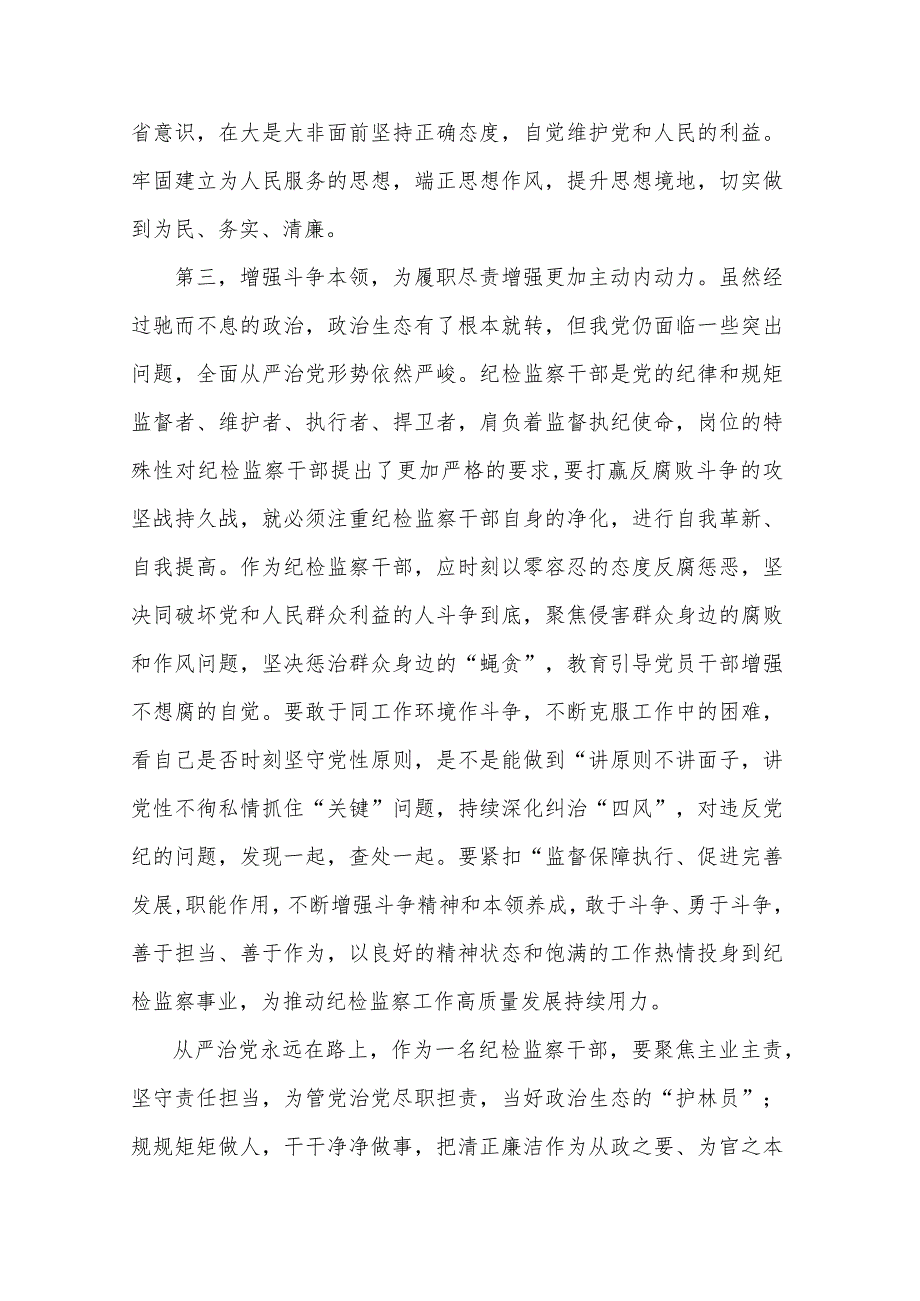 省意识，在大是大非面前坚持正确态度，自觉维护党和人民的利益。
牢固建立为人民服务的思想，端正思想作风，提升思想境地，切实做
到为民、务实、清廉。
第三，增强斗争本领，为履职尽责增强更加主动内动力。虽然经
过驰而不息的政治，政治生态有了根本就转，但我党仍面临一些突出
问题，全面从严治党形势依然严峻。纪检监察干部是党的纪律和规矩
监督者、维护者、执行者、捍卫者，肩负着监督执纪使命，岗位的特
殊性对纪检监察干部提出了更加严格的要求,要打赢反腐败斗争的攻
坚战持久战，就必须注重纪检监察干部自身的净化，进行自我革新、
自我提高。作为纪检监察干部，应时刻以零容忍的态度反腐惩恶，坚
决同破坏党和人民群众利益的人斗争到底，聚焦侵害群众身边的腐败
和作风问题，坚决惩治群众身边的“蝇贪”，教育引导党员干部增强
不想腐的自觉。要敢于同工作环境作斗争，不断克服工作中的困难，
看自己是否时刻坚守党性原则，是不是能做到“讲原则不讲面子，讲
党性不徇私情抓住“关键”问题，持续深化纠治“四风”，对违反党
纪的问题，发现一起，查处一起。要紧扣“监督保障执行、促进完善
发展,职能作用，不断增强斗争精神和本领养成，敢于斗争、勇于斗争，
善于担当、善于作为，以良好的精神状态和饱满的工作热情投身到纪
检监察事业，为推动纪检监察工作高质量发展持续用力。
从严治党永远在路上，作为一名纪检监察干部，要聚焦主业主责，
坚守责任担当，为管党治党尽职担责，当好政治生态的“护林员”；
规规矩矩做人，干干净净做事，把清正廉洁作为从政之要、为官之本